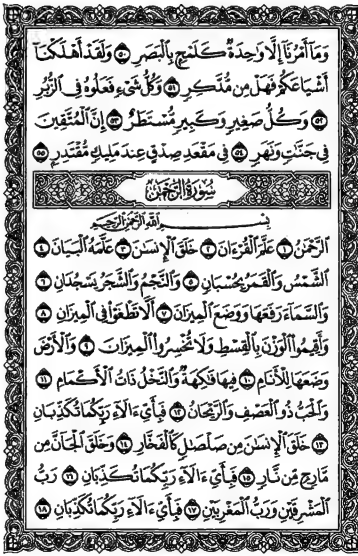 وَمَا أَمْرُنَا إِلَّا وَاحِدَةٌ كَلَمْحٍ بِالْبَصَرِ ٥٠ وَلَقَدْ أَهْلَكْنَا
أَشْيَاعَكُمْ فَهَلْ مِن مُّدَّكِرٍ ٥١ وَكُلُّ شَيْءٍ فَعَلُوهُ فِي الزُّبُرِ
٥٢ وَكُلُّ صَغِيرٍ وَكَبِيرٍ مُّسْتَطَرٌ ٥٣ إِنَّ الْمُتَّقِينَ
فِي جَنَّاتٍ وَنَهَرٍ ٥٤ فِي مَقْعَدِ صِدْقٍ عِندَ مَلِيكٍ مُّقْتَدِرٍ ٥٥
سُورَةُ الرَّحْمَٰنِ
بِسْمِ اللَّهِ الرَّحْمَٰنِ الرَّحِيمِ
الرَّحْمَٰنُ ١ عَلَّمَ الْقُرْءَانَ ٢ خَلَقَ الْإِنسَٰنَ ٣ عَلَّمَهُ الْبَيَانَ ٤
الشَّمْسُ وَالْقَمَرُ بِحُسْبَانٍ ٥ وَالنَّجْمُ وَالشَّجَرُ يَسْجُدَانِ ٦
وَالسَّمَاءَ رَفَعَهَا وَوَضَعَ الْمِيزَانَ ٧ أَلَّا تَطْغَوْا فِي الْمِيزَانِ ٨
وَأَقِيمُوا الْوَزْنَ بِالْقِسْطِ وَلَا تُخْسِرُوا الْمِيزَانَ ٩ وَالْأَرْضَ
وَضَعَهَا لِلْأَنَامِ ١٠ فِيهَا فَاكِهَةٌ وَالنَّخْلُ ذَاتُ الْأَكْمَامِ ١١
وَالْحَبُّ ذُو الْعَصْفِ وَالرَّيْحَانُ ١٢ فَبِأَيِّ ءَالَاءِ رَبِّكُمَا تُكَذِّبَانِ
١٣ خَلَقَ الْإِنسَٰنَ مِن صَلْصَٰلٍ كَالْفَخَّارِ ١٤ وَخَلَقَ الْجَانَّ مِن
مَّارِجٍ مِّن نَّارٍ ١٥ فَبِأَيِّ ءَالَاءِ رَبِّكُمَا تُكَذِّبَانِ ١٦ رَبُّ
الْمَشْرِقَيْنِ وَرَبُّ الْمَغْرِبَيْنِ ١٧ فَبِأَيِّ ءَالَاءِ رَبِّكُمَا تُكَذِّبَانِ ١٨